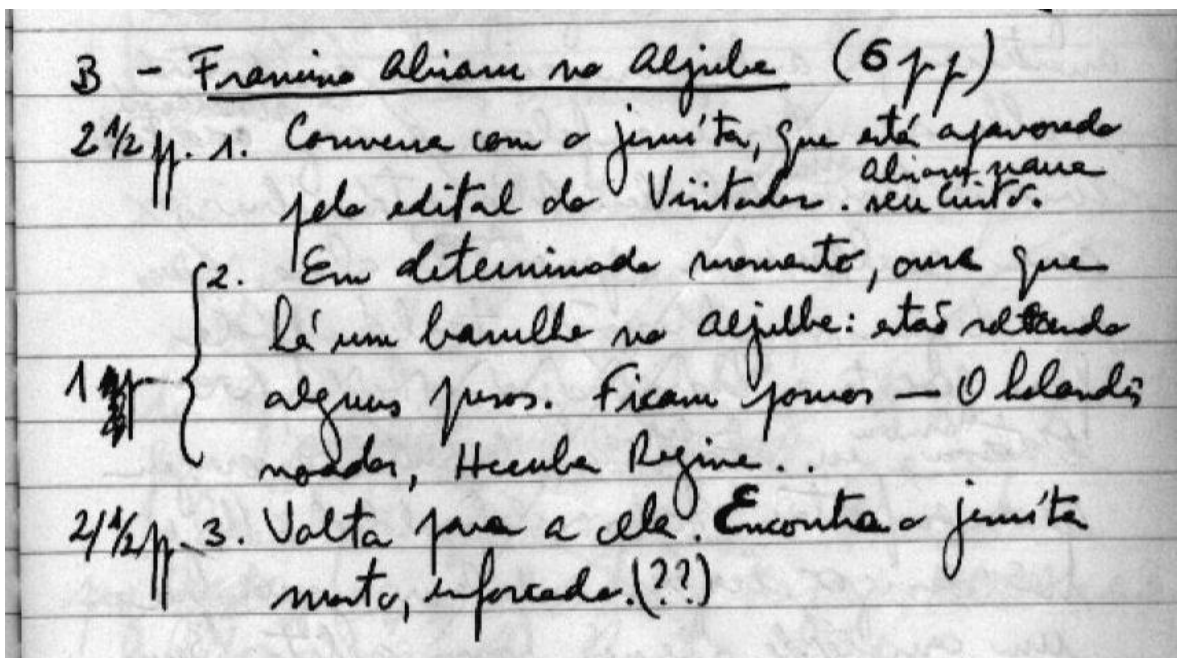 B - Francisco Abiam no Aljube (6 pp)
2 1/2 pp. 1. Conversa com o jesuíta, que está apavorado
pelo edital do Visitador. Abiam
seu
2. Em determinado momento, ouve que
há um barulho no Aljube: estão soltando
1 alguns presos. Ficam poucos — O holandês
Hecuba Regina..
2 1/2 pp. 3. Volta para a cela. Encontra o jesuíta
morto, enforcado. (??)